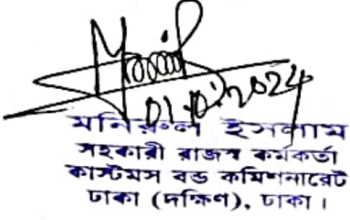 মনিরুল ইসলাম
সহকারী রাজস্ব কর্মকর্তা
কাস্টমস বন্ড কমিশনারেট
ঢাকা (দক্ষিণ), ঢাকা।